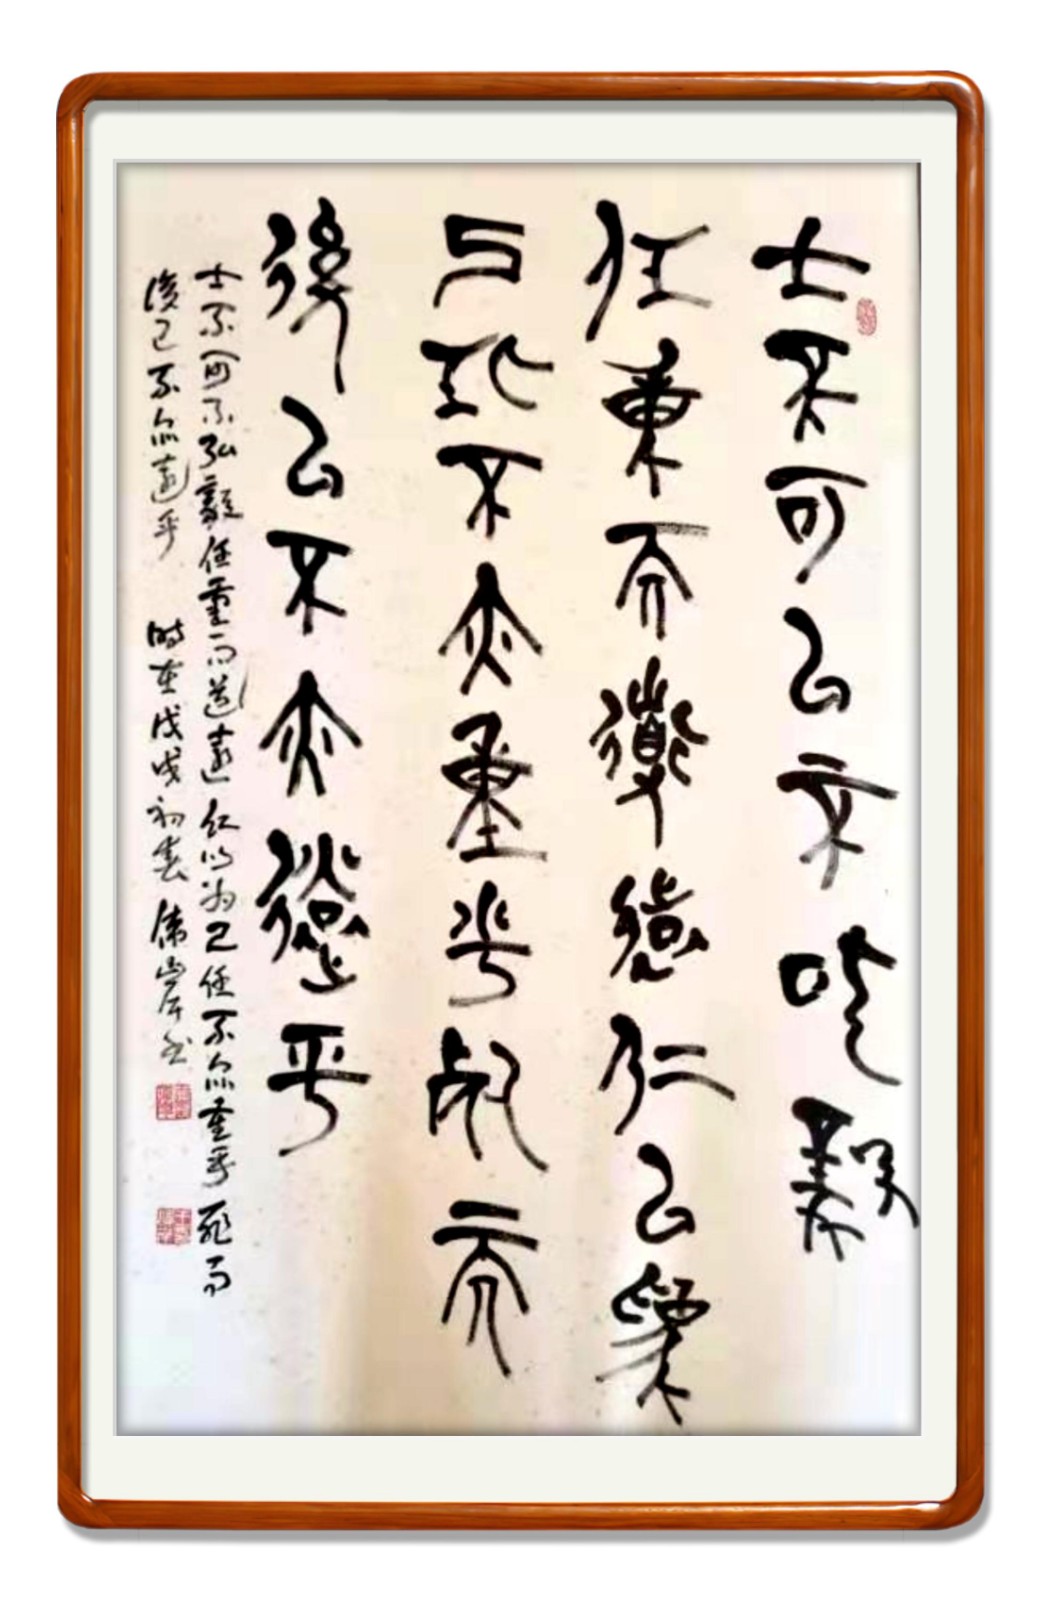 士不可以不弘毅
任重而道遠仁以為
己任不亦重乎死而
後已不亦遠乎
士不可不弘毅任重而道遠仁以为己任不亦重乎死而
後已不亦遠乎 时在戊戌初春 偉岸书